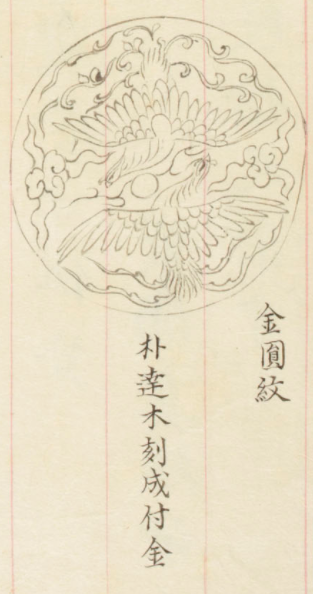 金圓紋
朴達木刻成付金